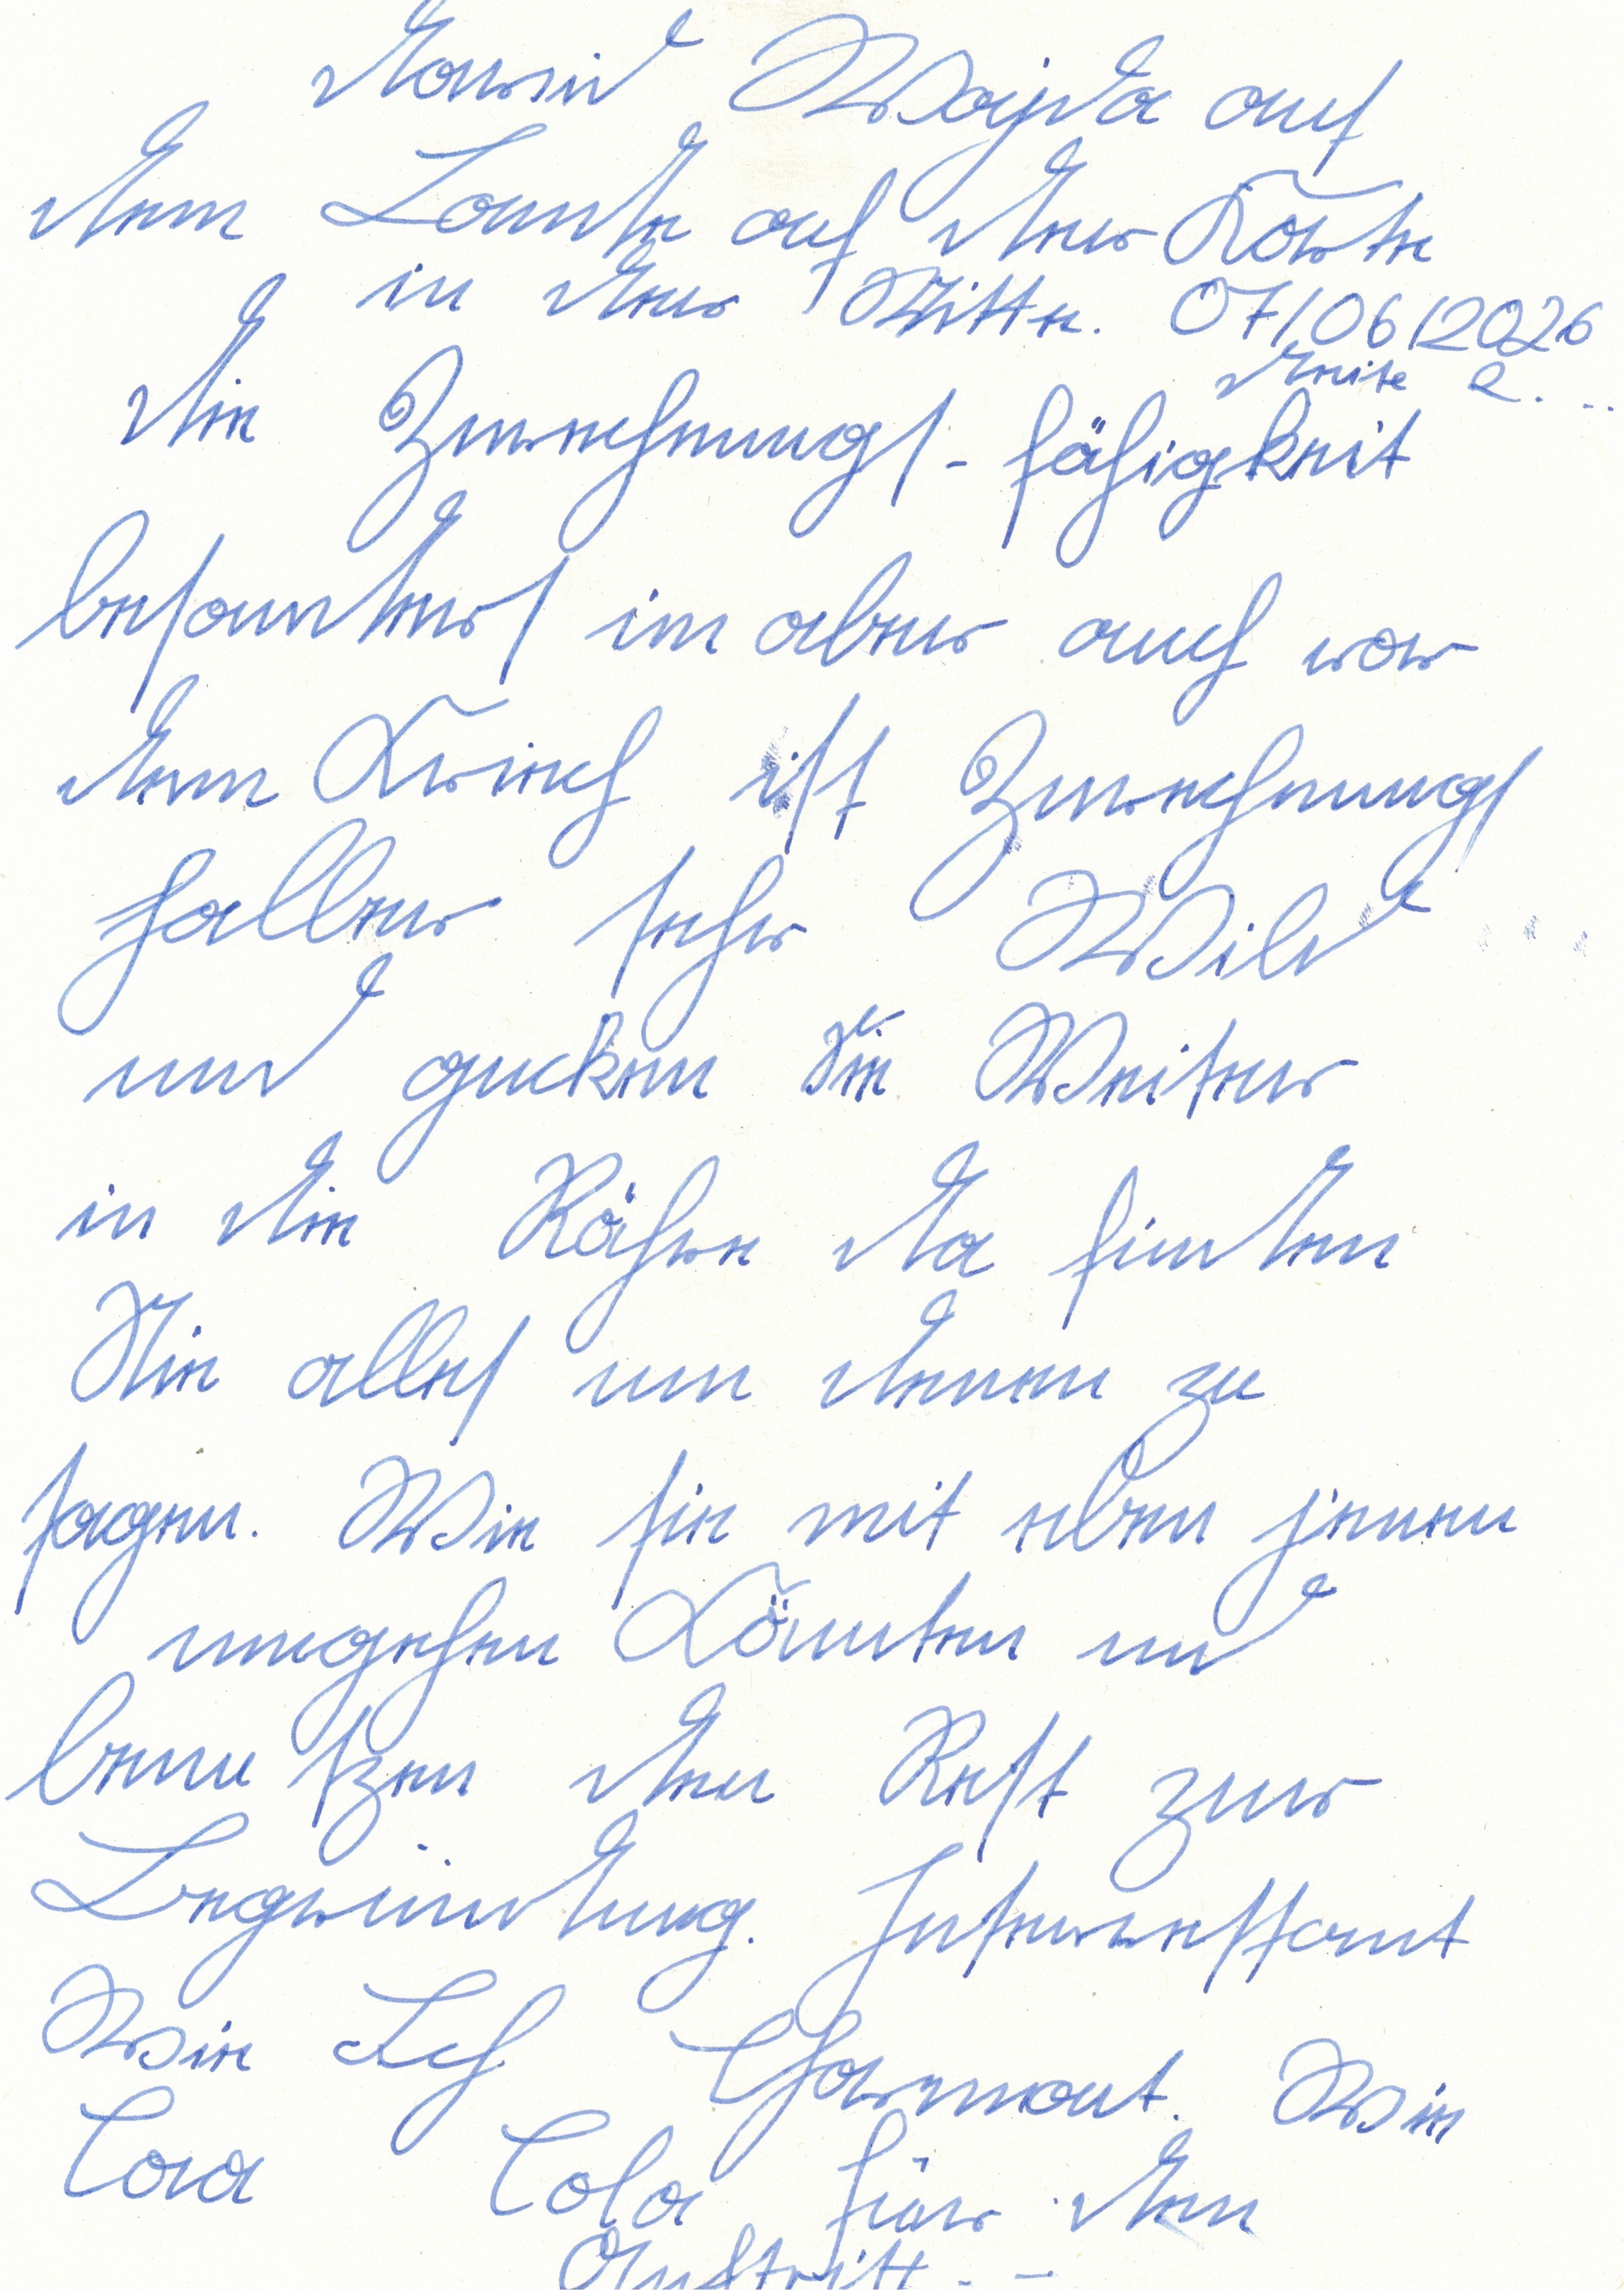 dawid Wajda auf
dem Bande auf der Karte
in der Mitte. 07/06/2026
2. ...
die Zurechnungs-fähigkeit
besonders im aber auch vor
dem Kriech ist Zurechnungs
halber sehr Wild
und gucken sie Weiter
in die Röhre da finden
Sie alles um denen zu
sagen. Wie sie mit eben jenen
umgehen Könnten und
benutzen den Rest zur
Begründung. Interressant
Wie Ich Charmant. Wie
Coca Cola für den
Auftritt. -